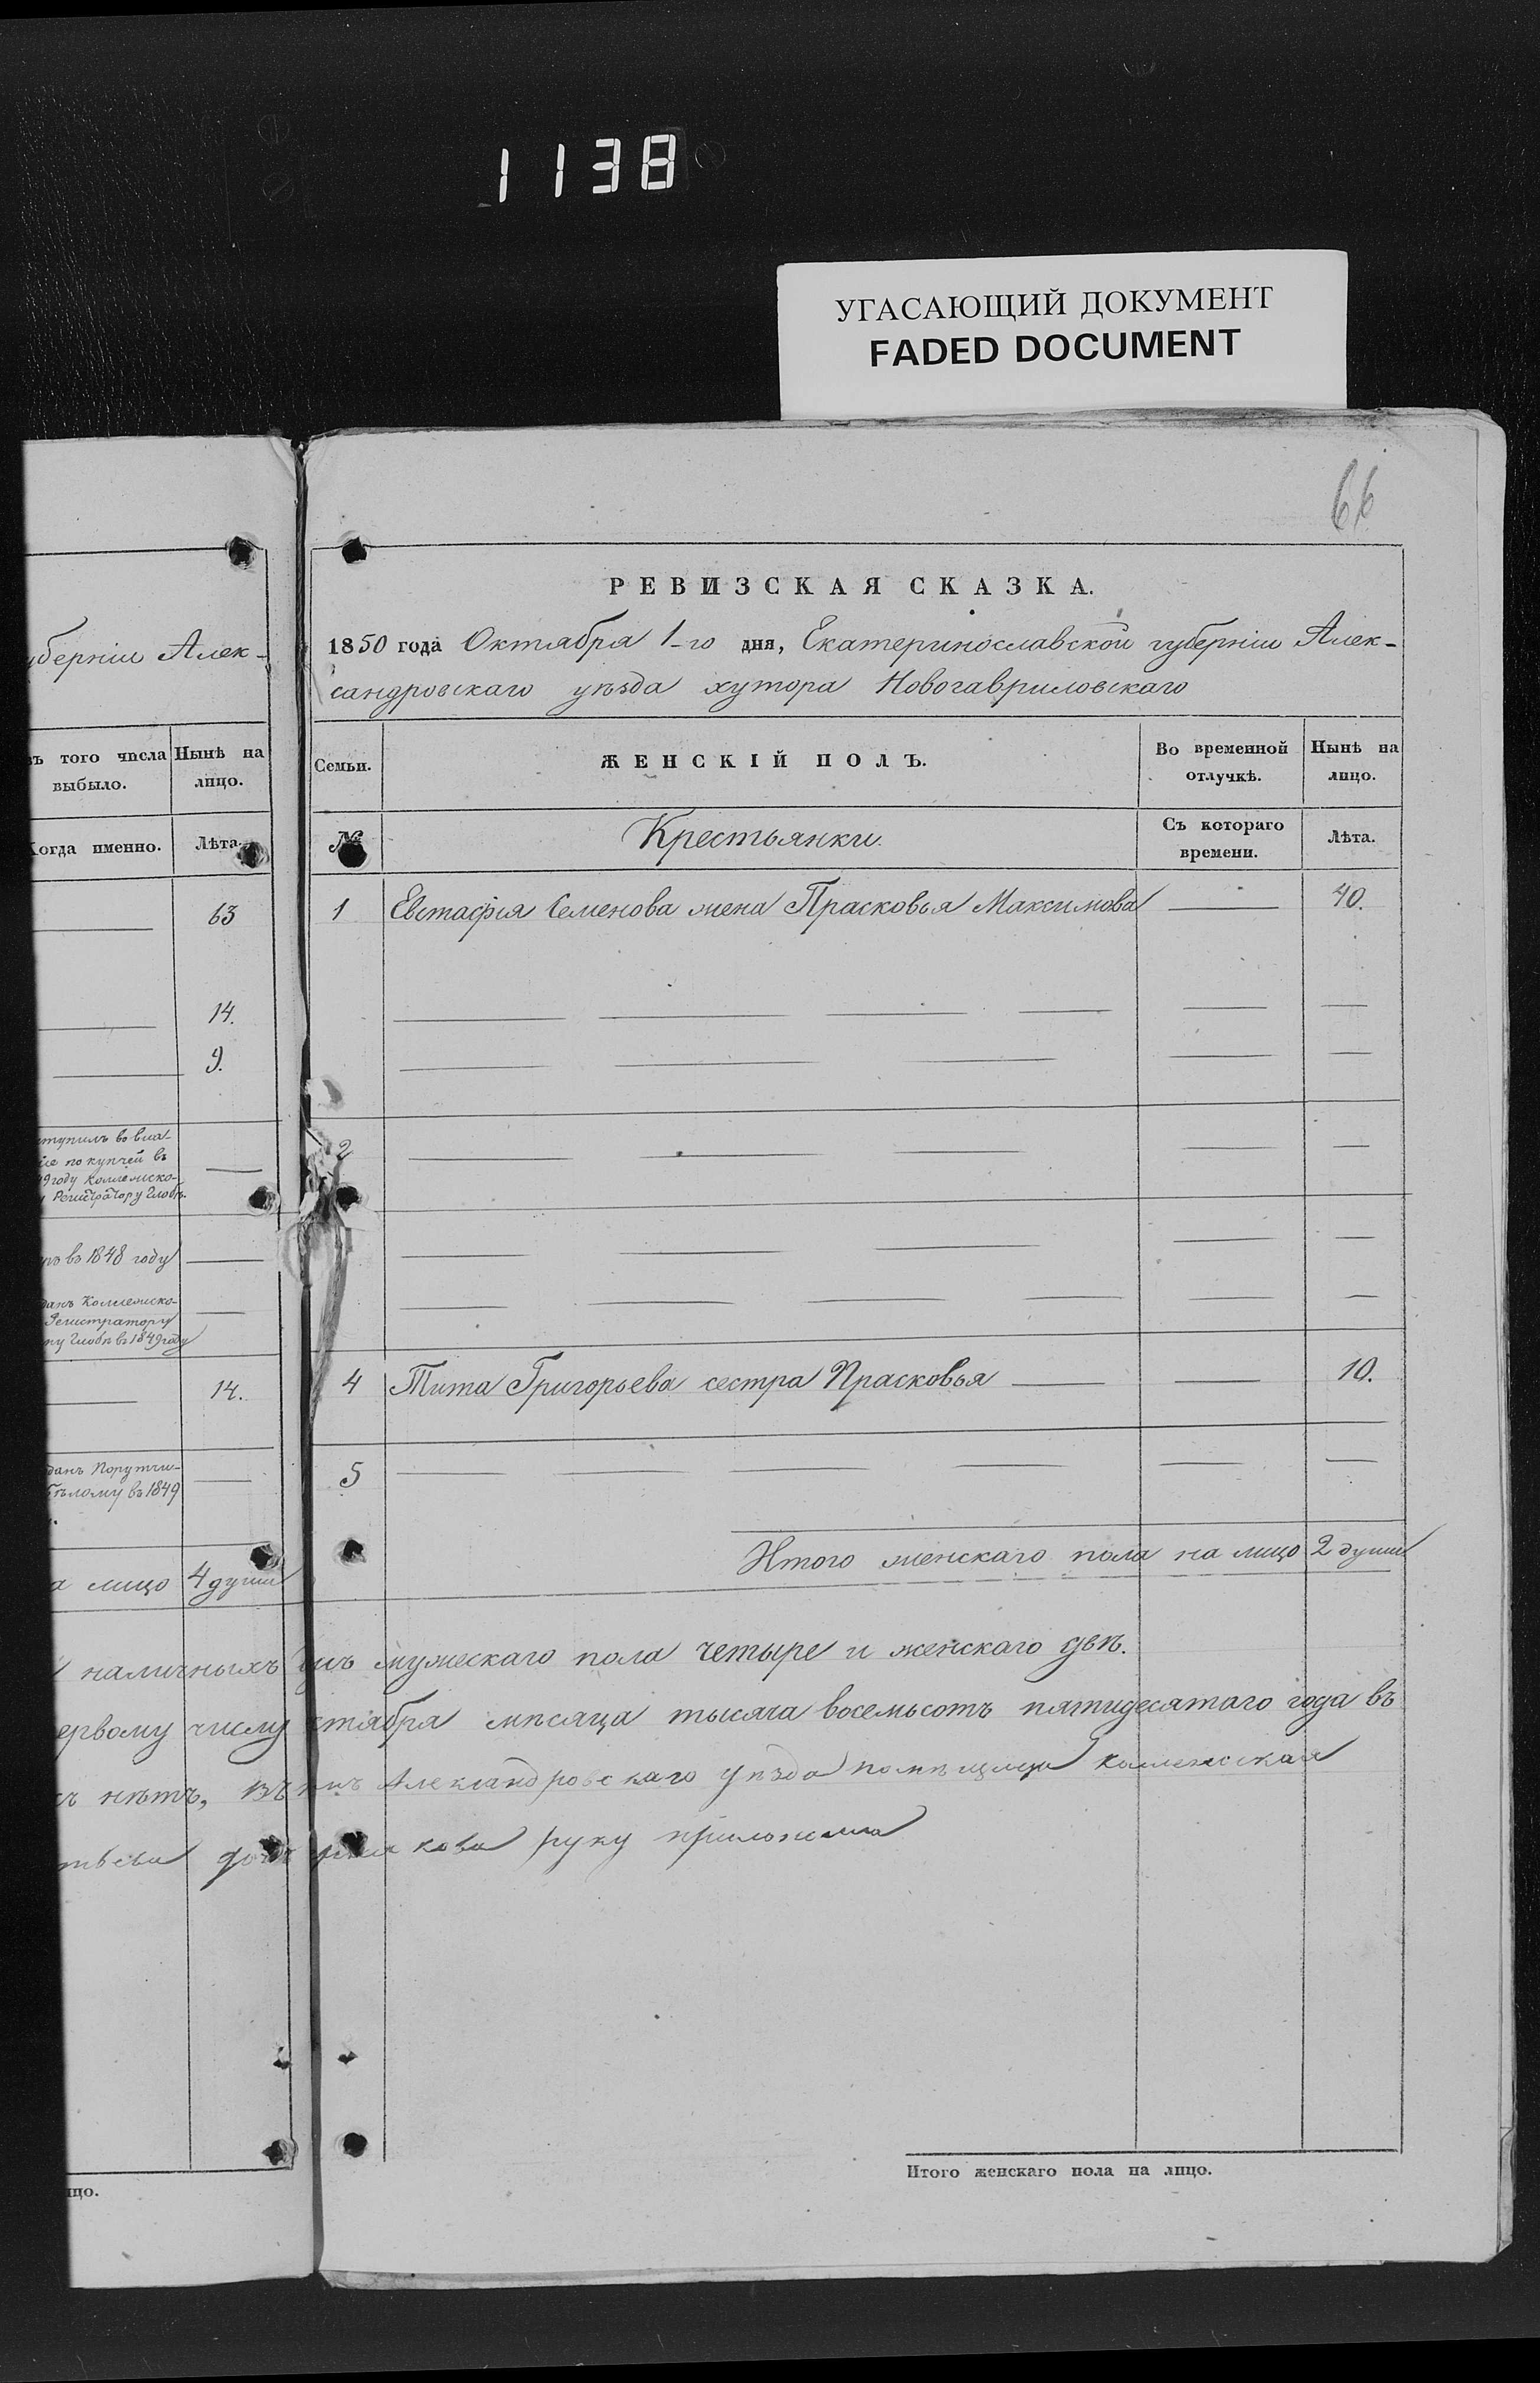 1138
УГАСАЮЩИЙ ДОКУМЕНТ
FADED DOCUMENT
66
губерніи Алек-
въ того числа выбыло.
Нынѣ на лицо.
Когда именно.
Лѣта.
63
14.
9.
поступилъ во вла-
по купчей въ
49 году Коллежско-
Регистратору Глобѣ.
въ 1848 году
Коллежско-
Регистратору
Глобѣ въ 1849 году
14.
Порутчи-
Бѣлому въ 1849
на лицо 4 души
РЕВИЗСКАЯ СКАЗКА.
1850 года Октября 1-го дня, Екатеринославской губерніи Алек-
сандровскаго уѣзда хутора Новогавриловскаго
Семьи.
ЖЕНСКІЙ ПОЛЪ.
Во временной отлучкѣ.
Нынѣ на лицо.
№
Крестьянки.
Съ котораго времени.
Лѣта.
1 Евстафія Семенова жена Прасковья Максимова 40.
2
4 Тита Григорьева сестра Прасковья 10.
5
Итого женскаго пола на лицо 2 души
наличныхъ душъ мужескаго пола четыре и женскаго двѣ.
первому числу октября мѣсяца тысяча восемьсотъ пятидесятаго года въ
нѣтъ, Александровскаго уѣзда помѣщица коллежская
руку приложила
Итого женскаго пола на лицо.
лицо.